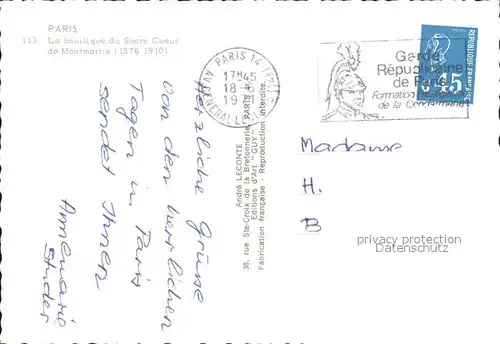 PARIS
113. La basilique du Sacré Coeur
de Montmartre (1876-1910)
PARIS 14
17H45
18-
19
GÉNÉRAL LE
Garde
Républicaine
de Paris
Formation
de la Gendarmerie
RÉPUBLIQUE FRANÇAISE
0.45
Herzliche Grüsse
von den herrlichen
Tagen in Paris
sendet Ihnen
Annemarie
Studer
André LECONTE
38, rue Ste-Croix de la Bretonnerie, PARIS
Editions d'Art "GUY"
Fabrication française - Reproduction interdite
Madame
H.
B
privacy protection
Datenschutz